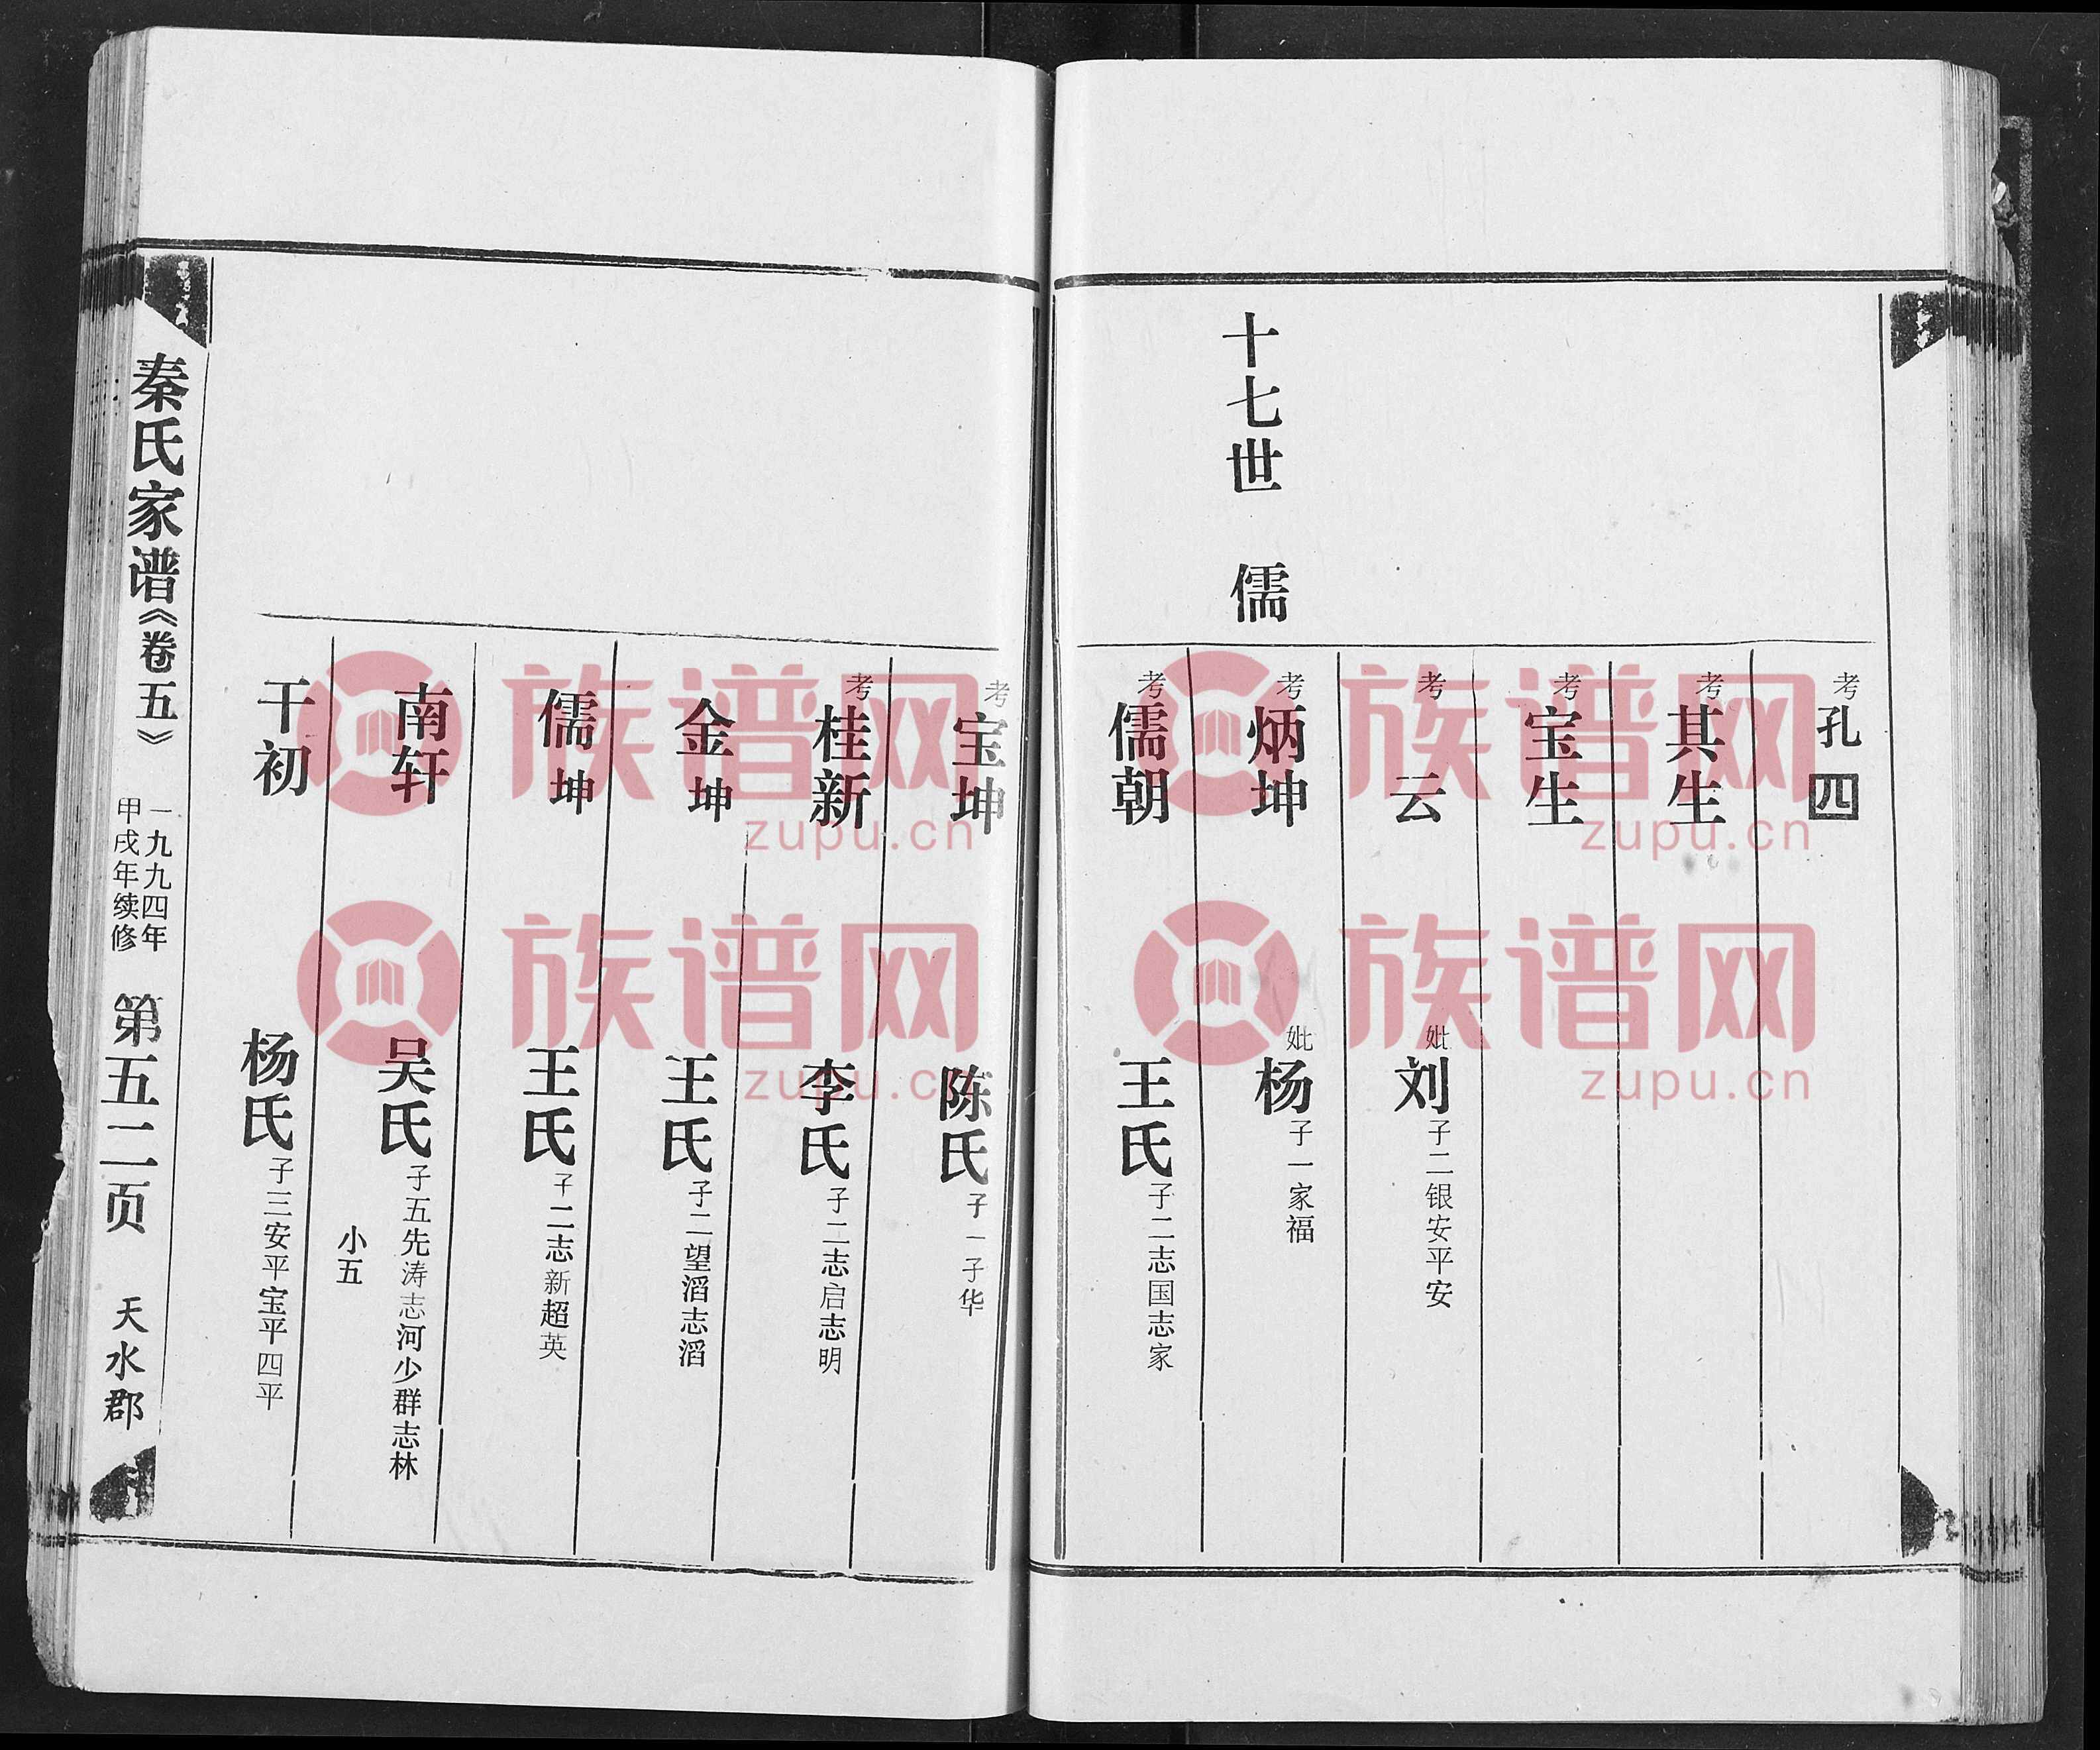 考孔四
考其生
考宝生
考云 妣刘 子二银安平安
考炳坤 妣杨 子一家福
十七世 儒
考儒朝 王氏 子二志国志家
考宝坤 陈氏 子一子华
考桂新 李氏 子二志启志明
金坤 王氏 子二望滔志滔
儒坤 王氏 子二志新超英
南轩 吴氏 子五先涛志河少群志林
小五
干初 杨氏 子三安平宝平四平
秦氏家谱《卷五》
一九九四年
甲戌年续修
第五二页
天水郡
族谱网
zupu.cn
族谱网
zupu.cn
族谱网
zupu.cn
族谱网
zupu.cn